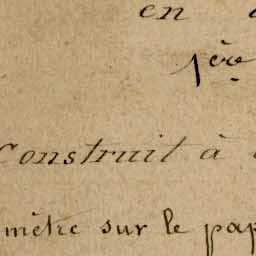 en
1ère
Construit à
mètre sur le pap